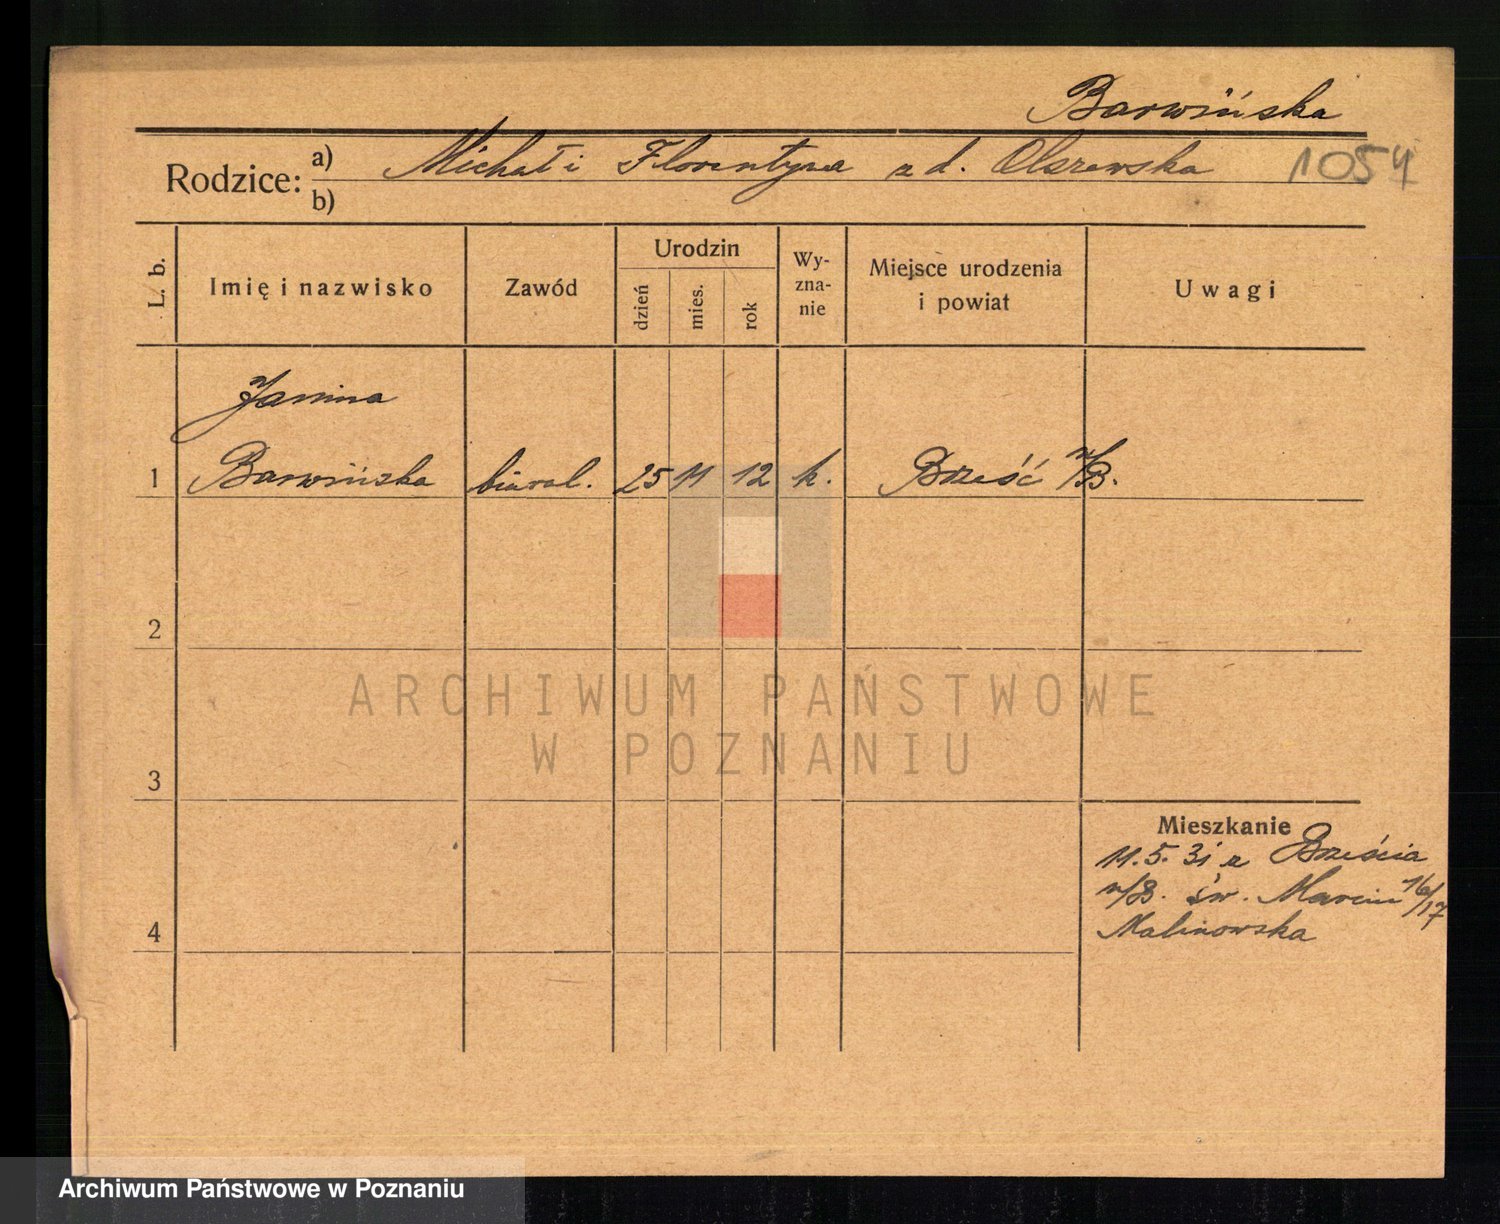 Barwińska
Rodzice: a) Michał i Florentyna z d. Olszewska 1054
b)
L. b. Imię i nazwisko Zawód Urodzin dzień mies. rok Wy-zna-nie Miejsce urodzenia i powiat Uwagi
Janina
1 Barwińska biural. 25 11 12 k. Brześć n/B.
2
ARCHIWUM PAŃSTWOWE
W POZNANIU
3
Mieszkanie
11.5.31 z Brześcia
n/B. św. Marcin 16/17
4 Malinowska
Archiwum Państwowe w Poznaniu